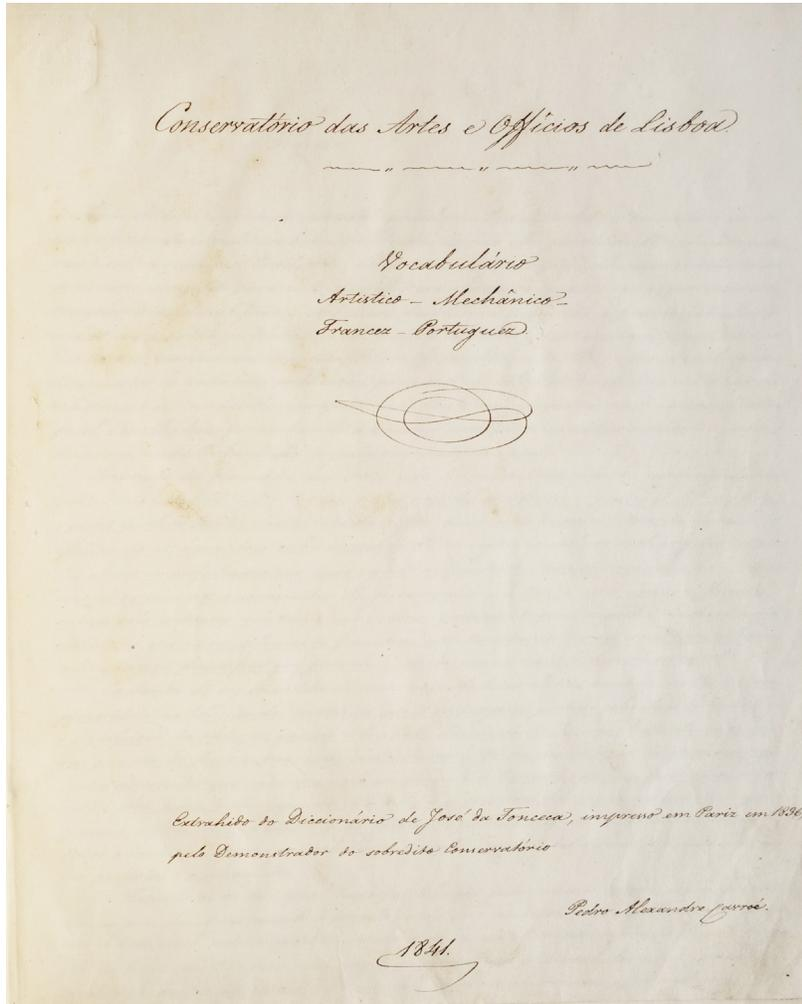 Conservatório das Artes e Officios de Lisboa.
Vocabulário
Artistico - Mechânico -
Francez - Portuguez.
Extrahido do Diccionário de José da Fonceca, impreso em Pariz em 1836,
pelo Demonstrador do sobredito Conservatório
Pedro Alexandre Cavroé.
1841.